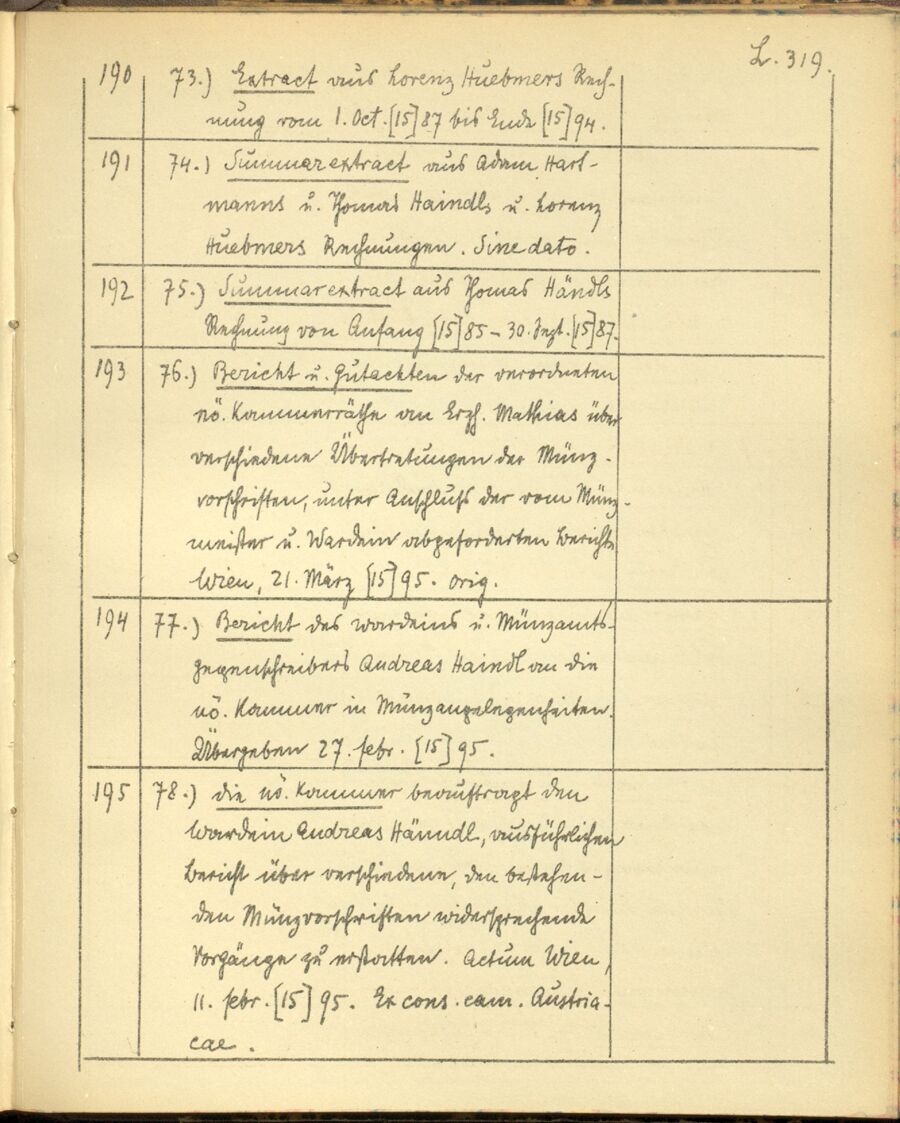 L. 319.
190 73.) Extract aus Lorenz Huebmers Rech-
nung vom 1. Oct. [15]87 bis Ende [15]94.
191 74.) Summarextract aus Adam Hart-
manns u. Thomas Haindls u. Lorenz
Huebmers Rechnungen. Sine dato.
192 75.) Summarextract aus Thomas Händls
Rechnung von Anfang [15]85 – 30. Sept. [15]87.
193 76.) Bericht u. Gutachten der verordneten
nö. Kammerräthe an Erzh. Mathias über
verschiedene Übertretungen der Münz-
vorschriften, unter Anschluss der vom Münz-
meister u. Wardein abgeforderten Berichte
Wien, 21. März [15]95. orig.
194 77.) Bericht des Wardeins u. Münzamts-
gegenschreibers Andreas Haindl an die
nö. Kammer in Münzangelegenheiten.
Übergeben 27. Febr. [15]95.
195 78.) Die nö. Kammer beauftragt den
Wardein Andreas Hänndl, ausführlichen
Bericht über verschiedene, den bestehen-
den Münzvorschriften widersprechende
Vorgänge zu erstatten. Actum Wien,
11. Febr. [15]95. Ex cons. cam. Austria-
cae.